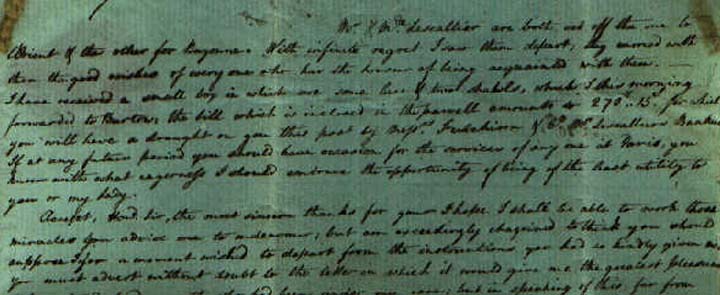 Mr & Mrs Lescallier are both set off the one to
L'Orient & the other for Bayonne. With infinite regret I saw them depart, they carried with
them the good wishes of every one who has the honour of being acquainted with them. —
I have received a small box in which are some lace & two shawls, which I this morning
forwarded to Burton, the bill which is inclosed in the parcell amounts to 278..15. for which
you will have a draught on you this post by Messrs & Co. Mr Lescallier's Bankers
If at any future period you should have occasion for the services of any one at Paris, you
know with what eagerness I should embrace the opportunity of being of the least utility to
you or my lady.
Accept, Hond. Sir, the most sincere thanks for your I hope I shall be able to work those
miracles you advise me to endeavour; but am exceedingly chagrined to think you should
suppose I for a moment wished to depart from the instructions you had so kindly given me
You must advert without doubt to the letter in which it would give me the greatest pleasure
in speaking of this, far from